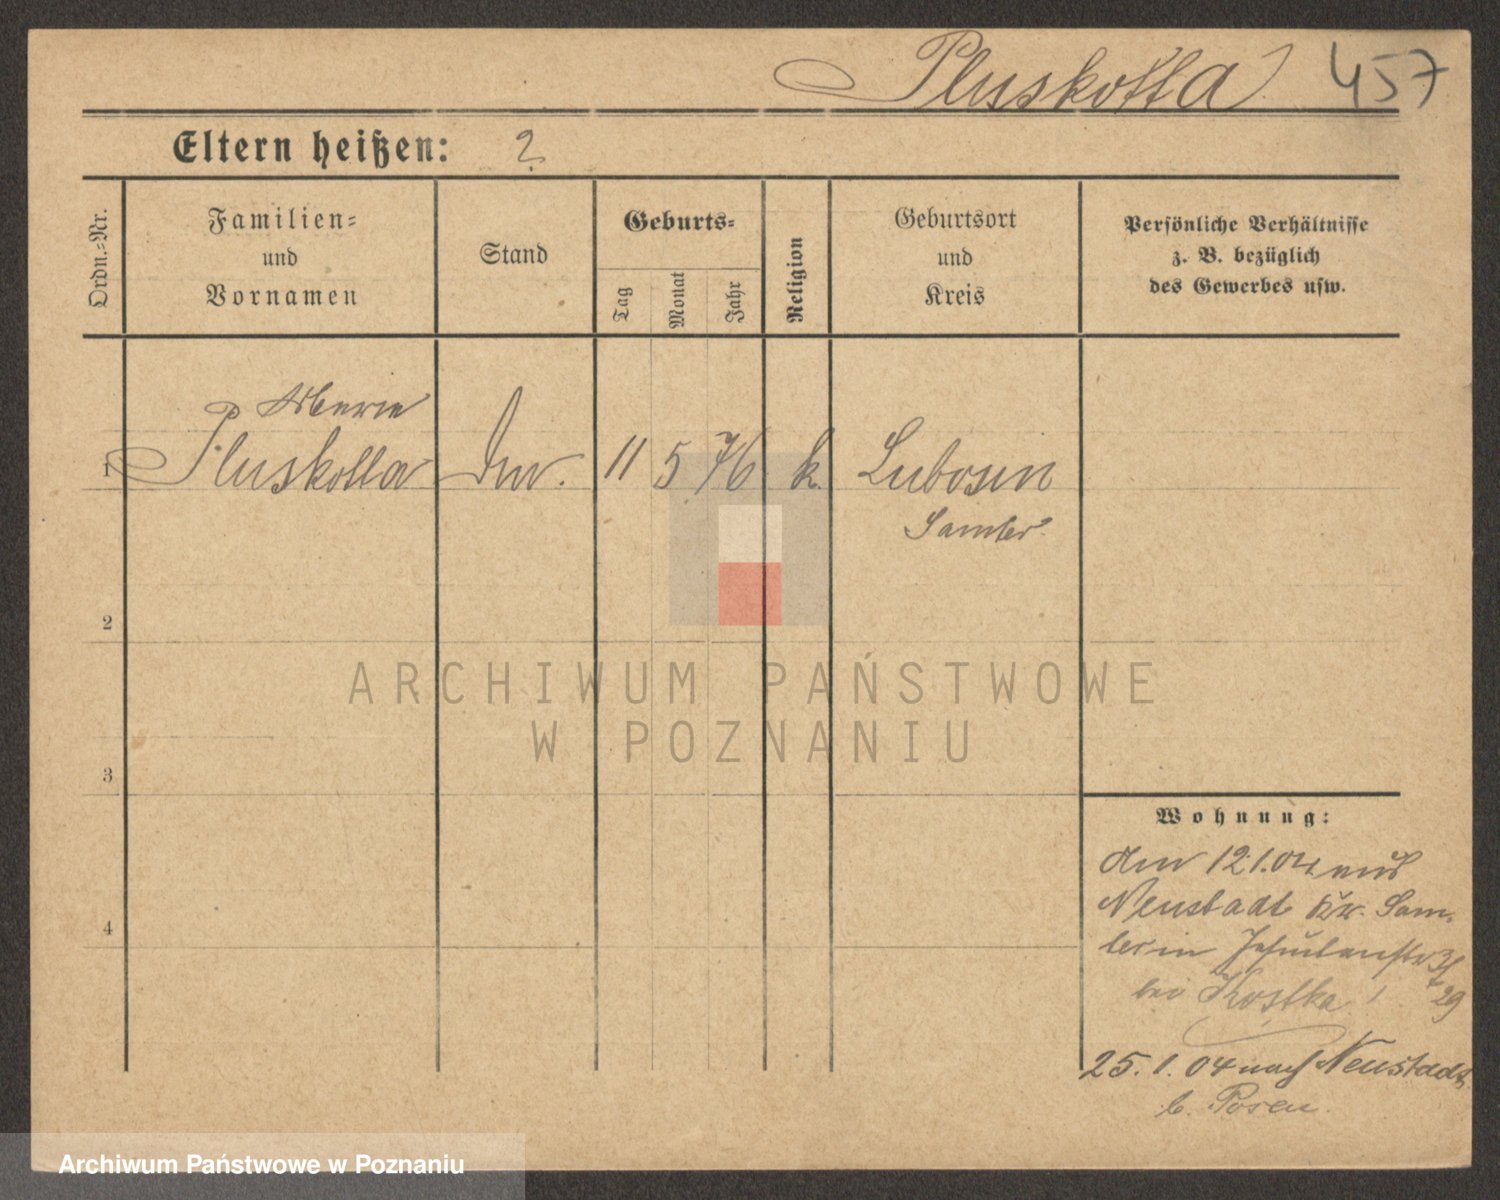 Pluskotta 457
Eltern heißen: ?
Ordn.=Nr.
Familien=
und
Vornamen
Stand
Geburts=
Tag
Monat
Jahr
Religion
Geburtsort
und
Kreis
Persönliche Verhältnisse
z. B. bezüglich
des Gewerbes usw.
1
Pluskotta
11 5 76 k.
Lubosin
Samter
2
3
4
ARCHIWUM PAŃSTWOWE
W POZNANIU
Wohnung:
12.1.04 aus
Neustadt Kr. Sam-
ter in
bei Kostka 29
25.1.04 nach Neustadt
b. Posen.
Archiwum Państwowe w Poznaniu